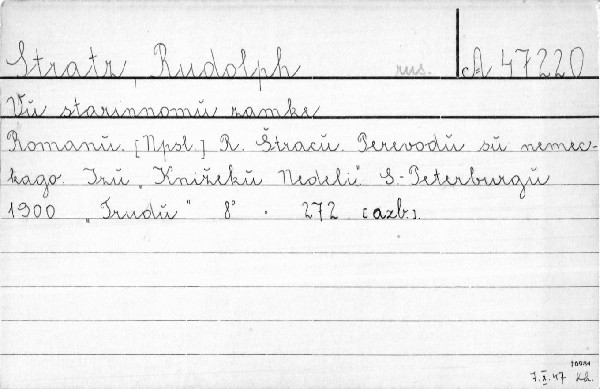 Stratz, Rudolph rus. A 47220
Vŭ starinnomŭ zamke
Romanŭ. [Npsl.] R. Štracŭ. Perevodŭ sŭ nemec-
kago. Izŭ „Knižekŭ Nedeli“. S.-Peterburgŭ
1900 „Trudŭ“ 8° . 272 [azb.].
7.X.47 Kh.